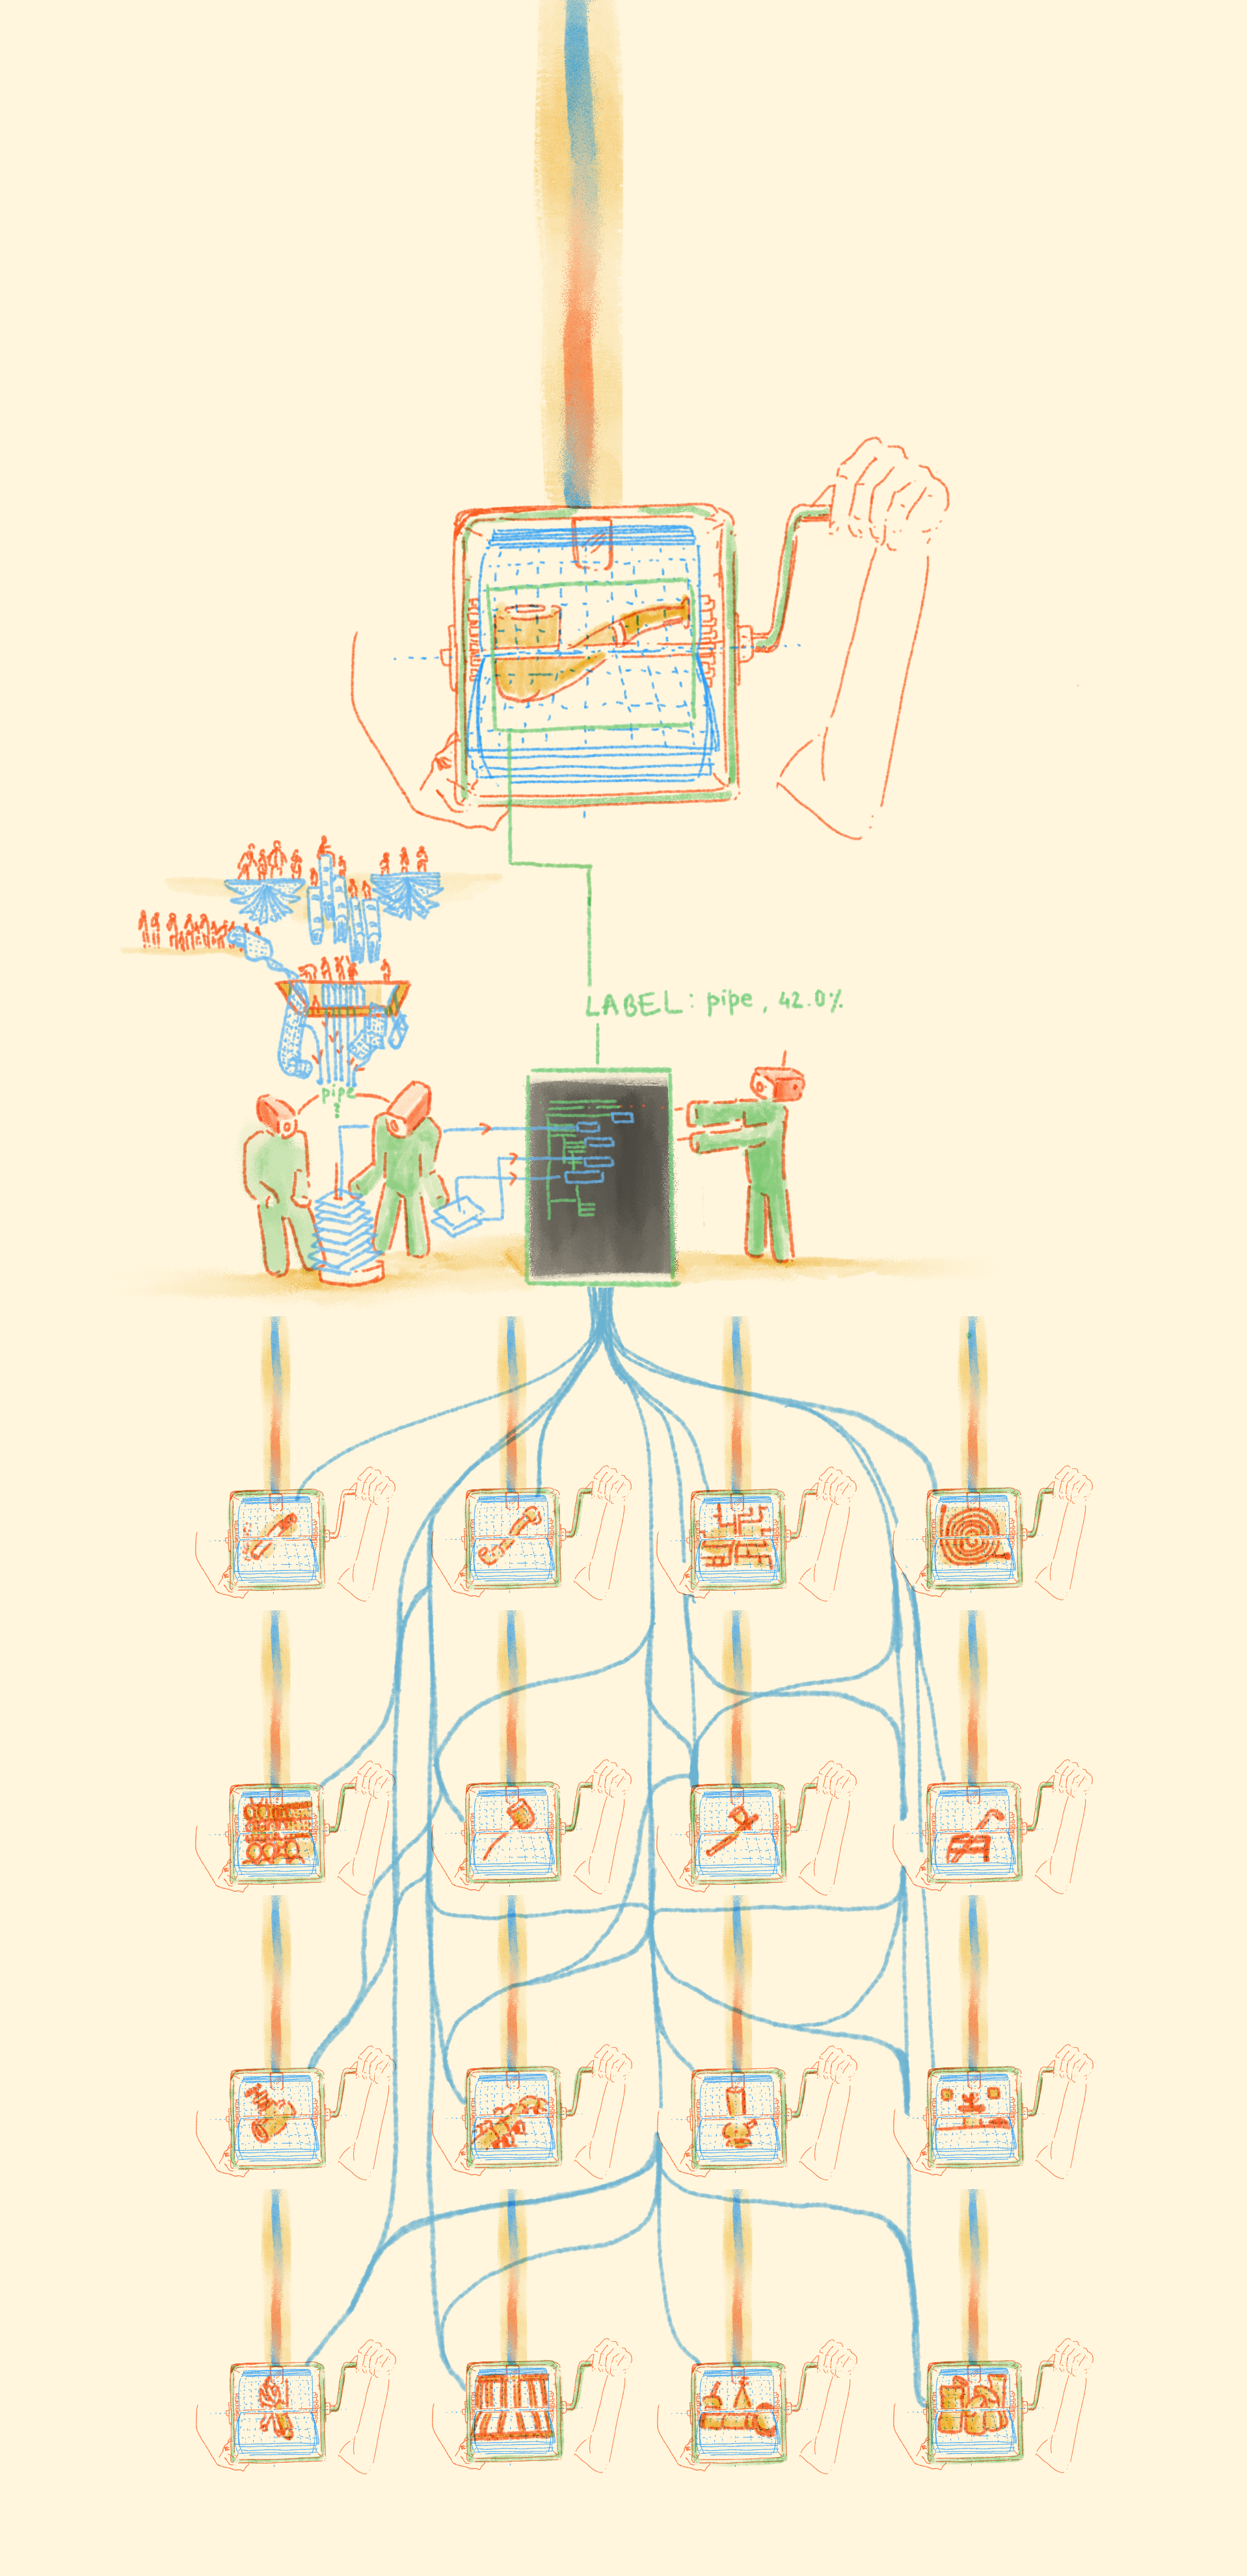 LABEL: pipe, 42.0%
pipe
?